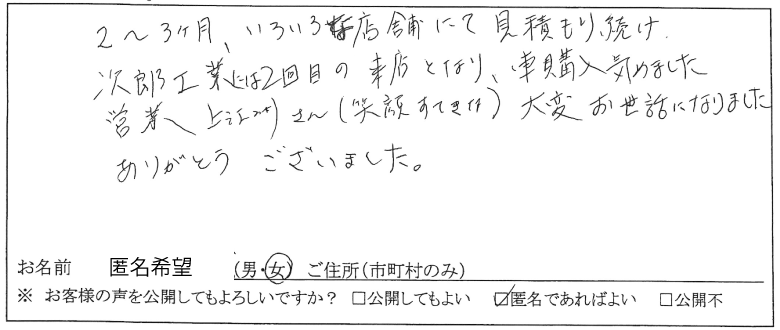 2～3ヶ月、いろいろな店舗にて見積もり続け
次郎工業には2回目の来店となり、車購入気めました
営業 上江 さん(笑顔すてきな)大変お世話になりました
ありがとう ございました。
お名前 匿名希望 (男・女) ご住所(市町村のみ)
※ お客様の声を公開してもよろしいですか? □公開してもよい ☑匿名であればよい □公開不